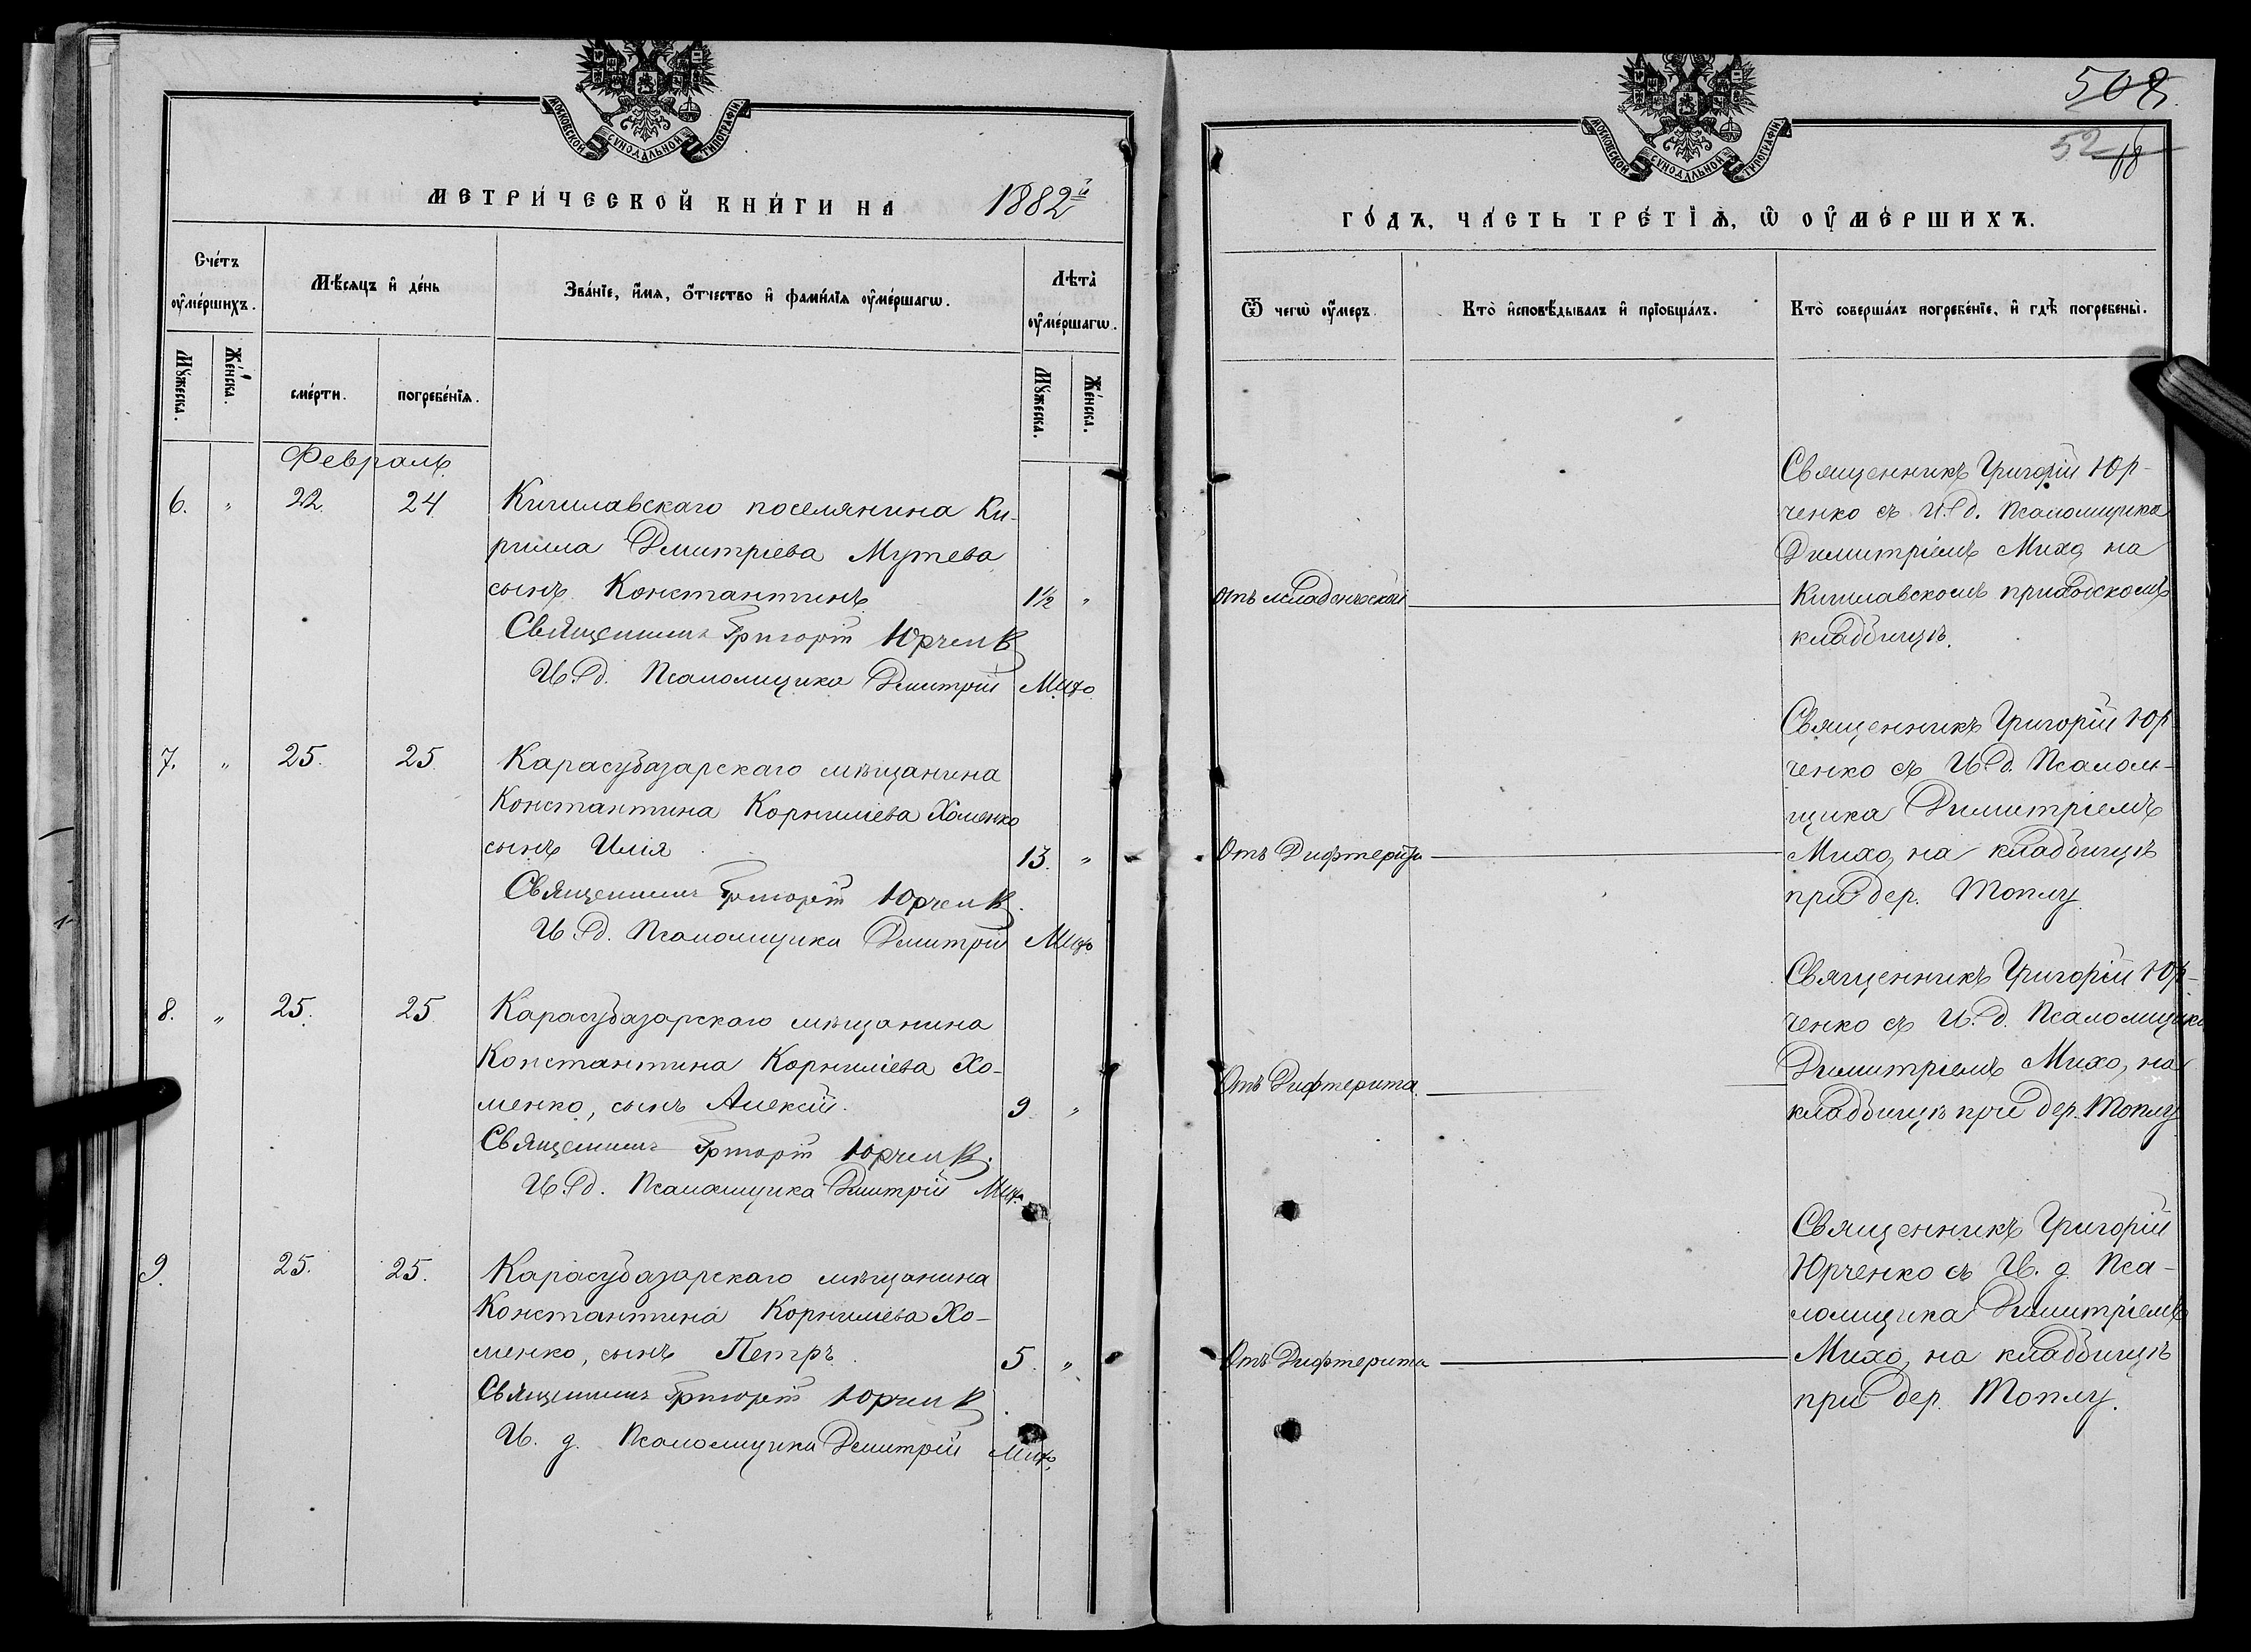 МОСКОВСКОЙ СѴНОДАЛЬНОЙ ТИПОГРАФІИ
МЕТРИ́ЧЕСКОЙ КНИ́ГИ НА 1882й
Сче́тъ ᲂу҆ме́ршихъ.
Мѣ́сяцъ и҆ де́нь
Зва́нїе, и҆́мя, ѻ҆́тчество и҆ фами́лїя ᲂу҆ме́ршагѡ.
Лѣта̀ ᲂу҆ме́ршагѡ.
Мꙋ́жеска.
Же́нска.
сме́рти.
погребе́нїя.
Мꙋ́жеска.
Же́нска.
Февраль
6. " 22. 24 Кишлавскаго поселянина Ки-
рилла Дмитріева Мутева
сынъ Константинъ 1½ "
Священникъ Григорій Юрченко
И. д. Псаломщика Дмитрій Михо
7. " 25. 25. Карасубазарскаго мѣщанина
Константина Корниліева Хоменко
сынъ Илія 13. "
Священникъ Григорій Юрченко
И. д. Псаломщика Дмитрій Михо
8. " 25. 25. Карасубазарскаго мѣщанина
Константина Корниліева Хо-
менко, сынъ Алексій. 9 "
Священникъ Григорій Юрченко
И. д. Псаломщика Дмитрій Михо
9. 25. 25. Карасубазарскаго мѣщанина
Константина Корниліева Хо-
менко, сынъ Петръ. 5. "
Священникъ Григорій Юрченко
И. д. Псаломщика Дмитрій Михо
МОСКОВСКОЙ СѴНОДАЛЬНОЙ ТИПОГРАФІИ
52
ГО́ДЪ, ЧА́СТЬ ТРЕ́ТЇѦ, Ѡ҆ ОУ҆МЕ́РШИХЪ.
Ѿ чегѡ̀ ᲂу҆́меръ.
Кто̀ и҆сповѣ́дывалъ и҆ прїобща́лъ.
Кто̀ соверша́лъ погребе́нїе, и҆ гдѣ̀ погребены̀.
Священникъ Григорій Юр-
ченко съ И. д. Псаломщика
Димитріемъ Михо, на
отъ младенческой Кишлавскомъ приходскомъ
кладбищѣ.
Священникъ Григорій Юр-
ченко съ И. д. Псалом-
щика Димитріемъ
Отъ Дифтерита Михо, на кладбищѣ
при дер. Топлу.
Священникъ Григорій Юр-
ченко съ И. д. Псаломщика
Отъ Дифтерита Димитріемъ Михо, на
кладбищѣ при дер. Топлу
Священникъ Григорій
Юрченко съ И. д. Пса-
ломщика Димитріемъ
Отъ Дифтерита Михо, на кладбищѣ
при дер. Топлу.